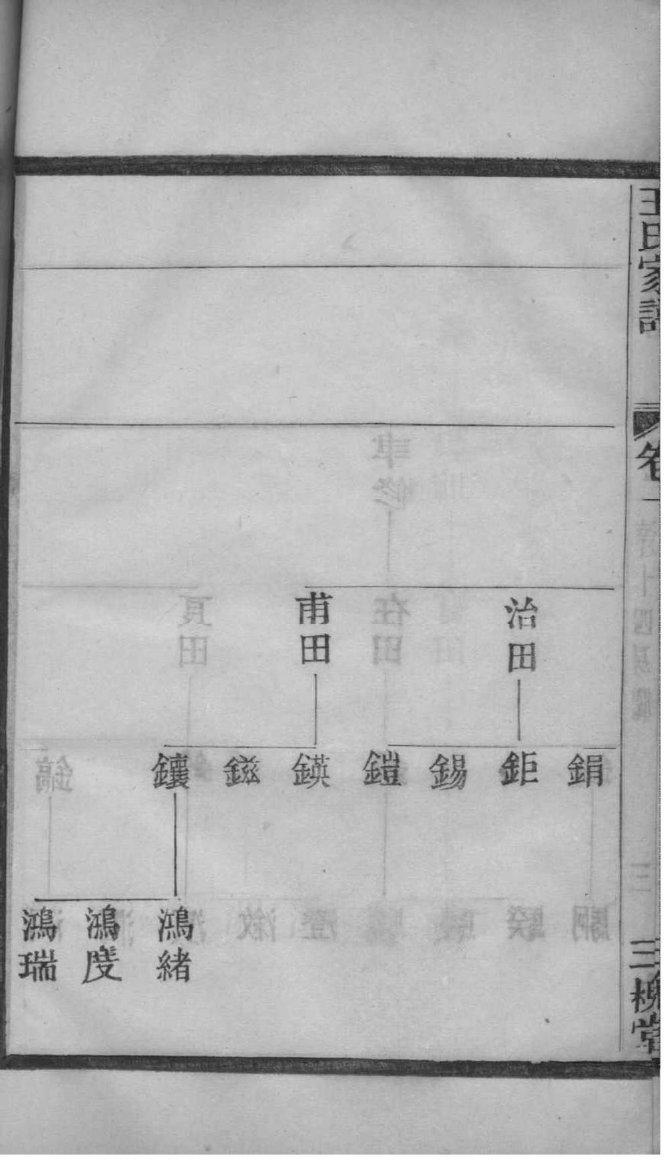 王氏家譜
卷一
三槐堂
治田
甫田
鋗
鉅
錫
鎧
鍈
鎡
鑲
鴻緒
鴻度
鴻瑞